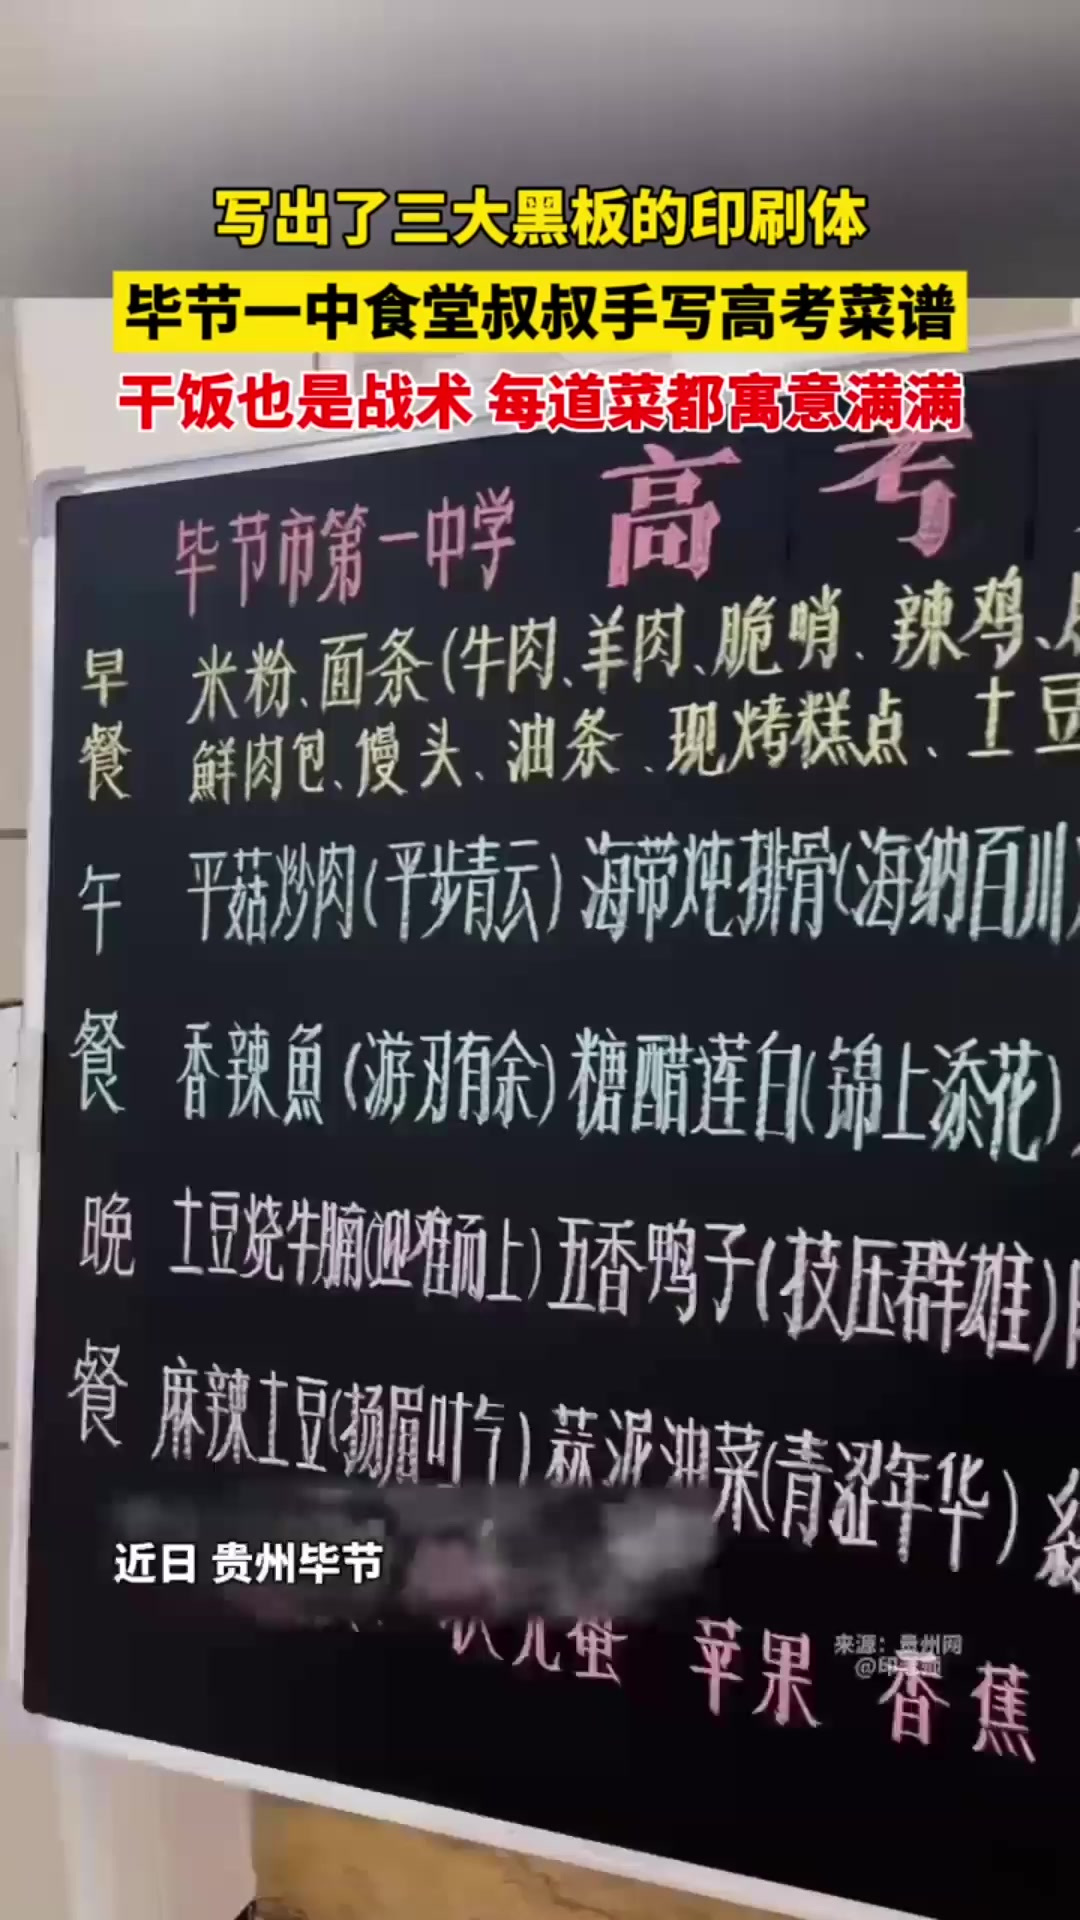 写出了三大黑板的印刷体
毕节一中食堂叔叔手写高考菜谱
干饭也是战术 每道菜都寓意满满
毕节市第一中学 高考
早餐 米粉、面条(牛肉、羊肉、脆哨、辣鸡、
鲜肉包、馒头、油条、现烤糕点、土豆
午餐 平菇炒肉(平步青云) 海带炖排骨(海纳百川
香辣魚(游刃有余) 糖醋莲白(锦上添花)
晚餐 土豆烧牛腩(迎难而上) 五香鸭子(技压群雄)
麻辣土豆(扬眉吐气) 蒜泥油菜(青涩年华)
近日 贵州毕节
苹果 香蕉
来源：贵州网